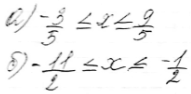 а) -9/5 ≤ x ≤ 9/5
б) -11/2 ≤ x ≤ -1/2